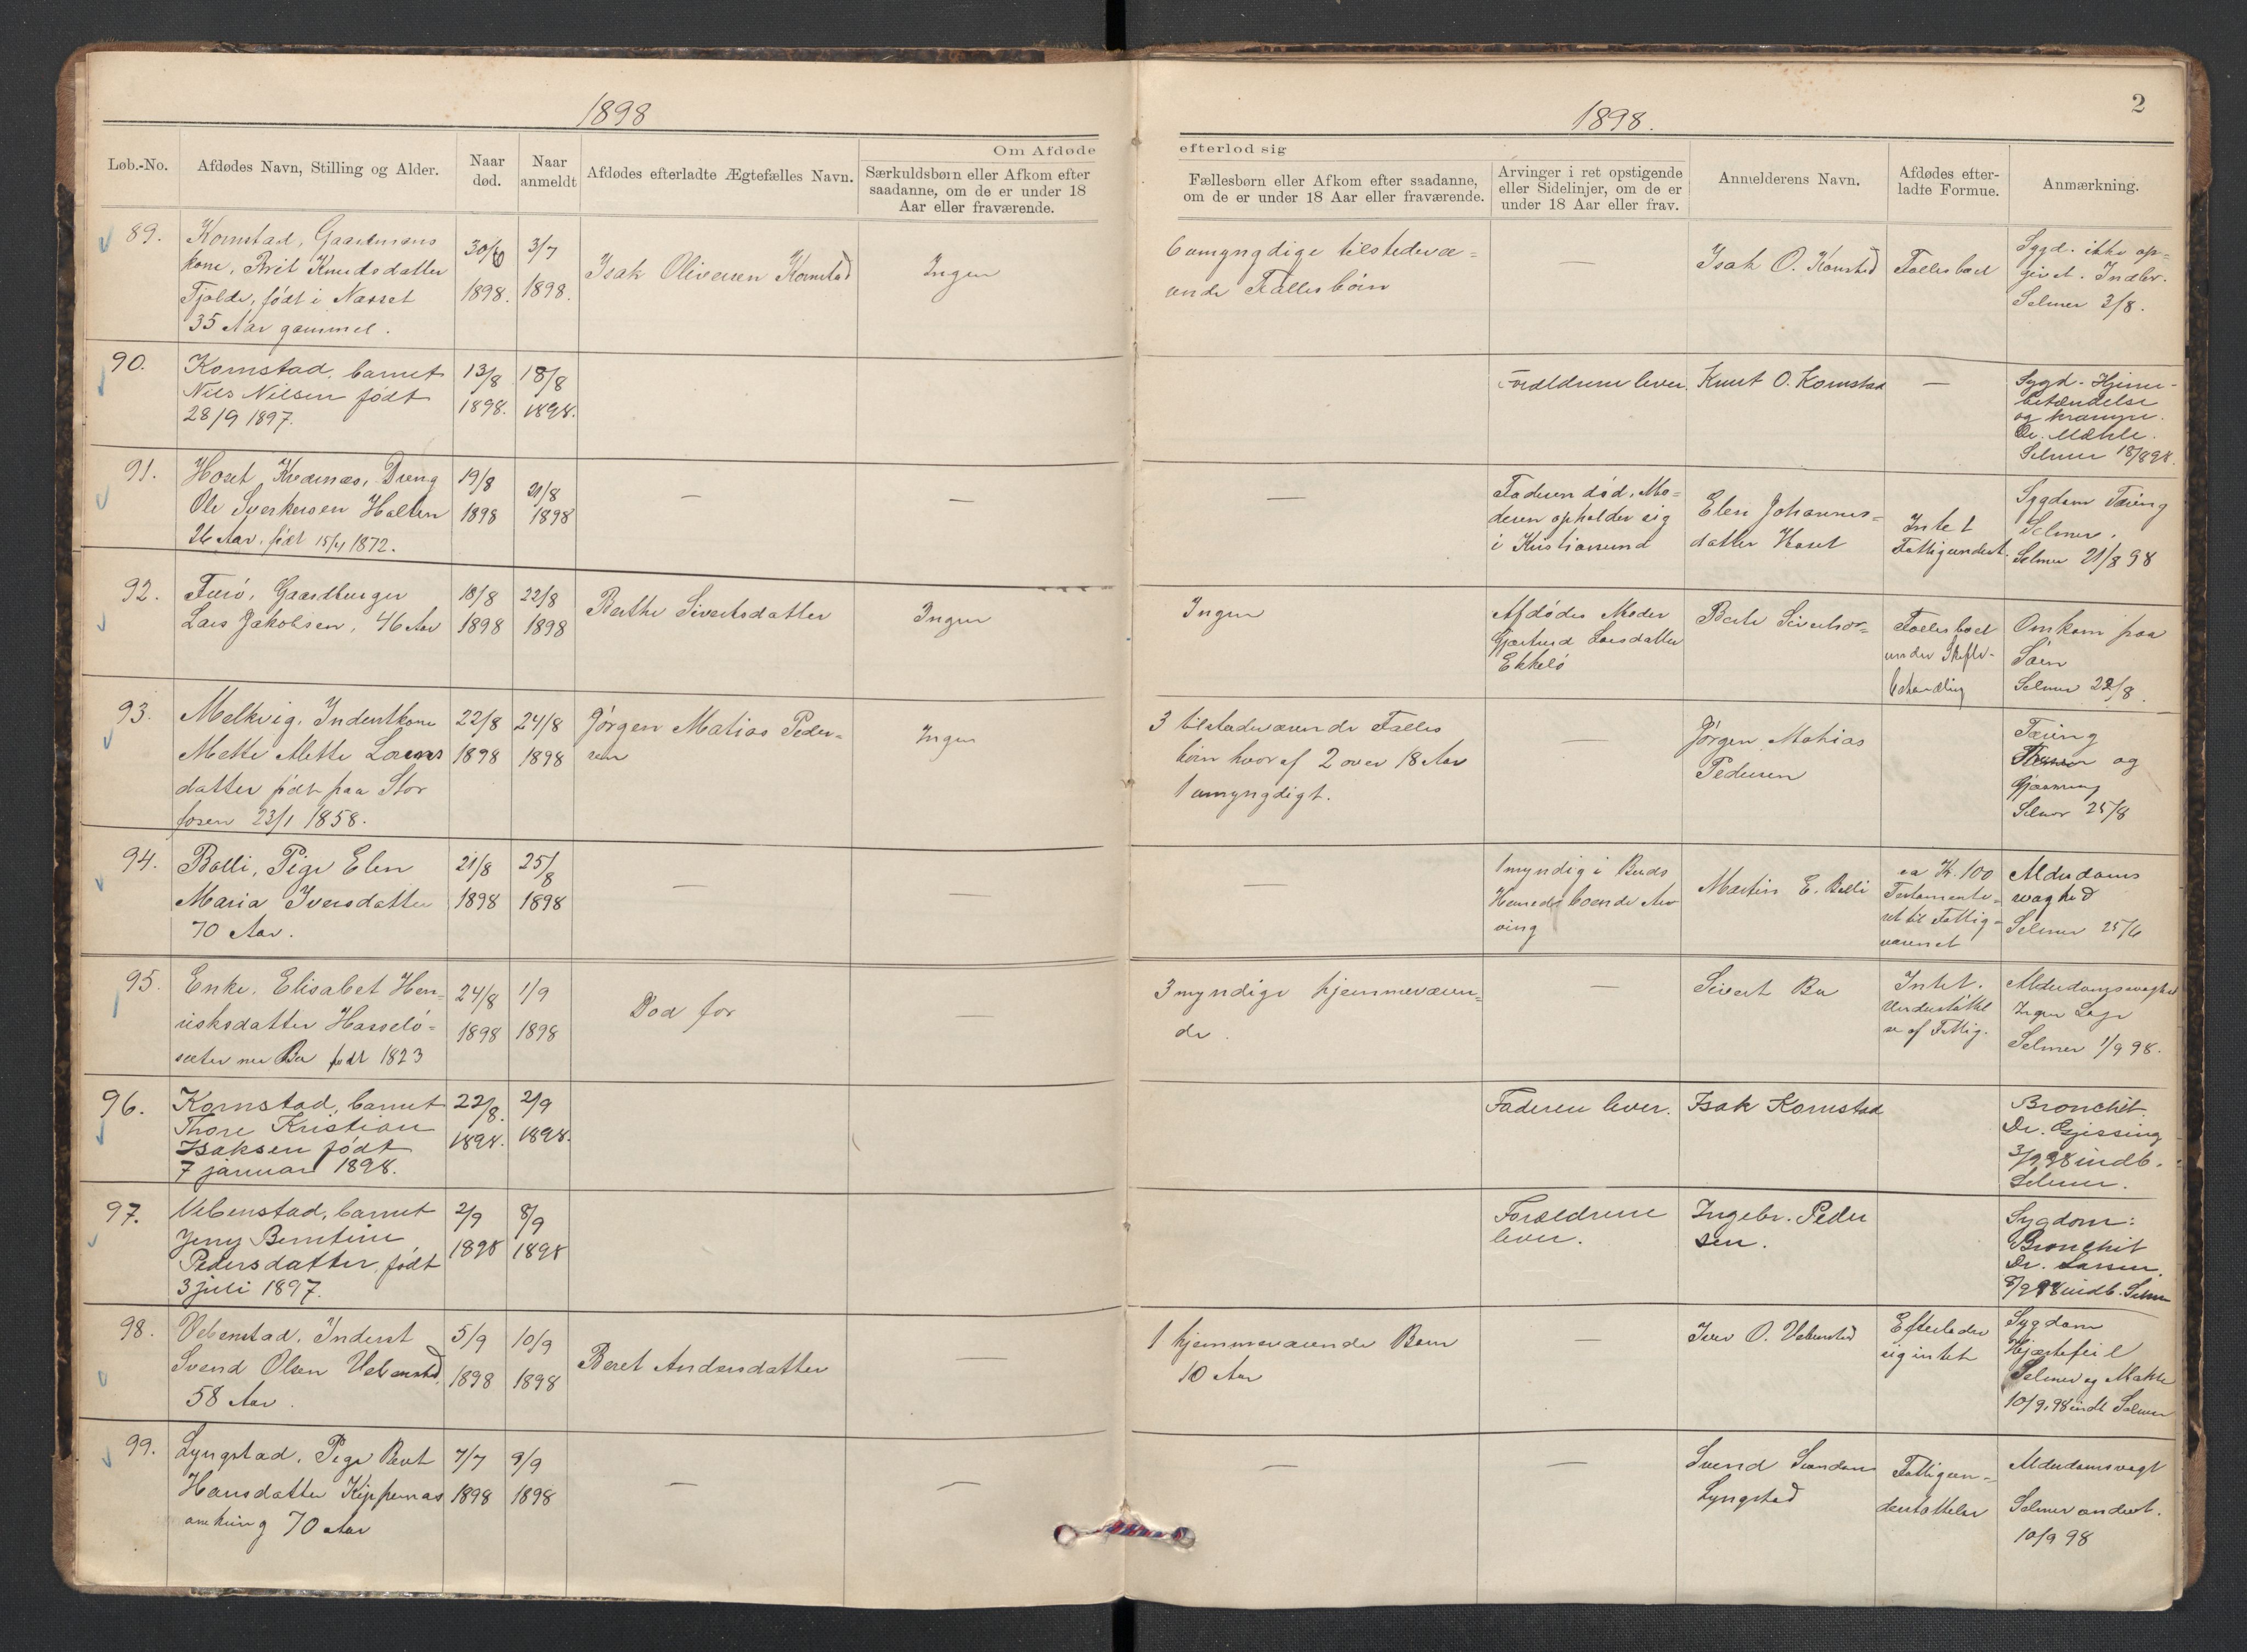 1898
1898.
2
Om Afdøde
efterlod sig
Løb.-No.
Afdødes Navn, Stilling og Alder.
Naar
død.
Naar
anmeldt
Afdødes efterladte Ægtefælles Navn.
Særkuldsbørn eller Afkom efter
saadanne, om de er under 18
Aar eller fraværende.
Fællesbørn eller Afkom efter saadanne,
om de er under 18 Aar eller fraværende.
Arvinger i ret opstigende
eller Sidelinjer, om de er
under 18 Aar eller frav.
Anmelderens Navn.
Afdødes efter-
ladte Formue.
Anmærkning.
89.
Kornstad, Gaardmans
kone, Brit Knudsdatter
Tjelde, født i Nesset
35 Aar gammel.
30/6
1898.
3/7
1898.
Isak Oliversen Kornstad
Ingen
6 umyngdige tilstedevæ-
ende Fællesbørn
—
Isak O. Kornstad
Fællesboet
Sygd. ikke op-
givet. Indbr.
Selmer 3/8.
90.
Kornstad, barnet
Nils Nilsen født
28/9 1897.
13/8
1898.
18/8
1898.
Forældrene lever.
Knut O. Kornstad
—
Sygd. Hjerne-
betændelse
og krampe.
Dr. Mæhle.
Selmer 18/8 98.
91.
Hoset, Kvernæs, Dreng
Ole Sverkersen Halten
26 Aar, født 15/4 1872.
19/8
1898
21/8
1898
—
—
—
Faderen død, Mo-
deren opholder sig
i Kristiansund
Elen Johannes-
datter Hoset
Intet
Fattigunderst.
Sygdom Tæring
Selmer.
Selmer 21/8 98
92.
Furø, Gaardbruger
Lars Jakobsen, 46 Aar
18/8
1898
22/8
1898
Berthe Sivertsdatter
Ingen
Ingen
Afdødes Moder
Gjertrud Larsdatter
Ekkelø
Fællesboet
under Skifte-
behandling
Omkom paa
Søen
Selmer 22/8.
93.
Melkvig, Inderstkone
Mette Mette Lorens
datter født paa Stor
fosen 23/1 1858.
22/8
1898
24/8
1898
Jørgen Matias Peder-
sen
Ingen
3 tilstedeværende Fælles
børn hvoraf 2 over 18 Aar
1 umyngdigt.
—
Jørgen Mathias
Pedersen
Tæring
og
Selmer 25/8
94.
Bolli, Pige Elen
Maria Iversdatter
70 Aar.
21/8
1898
25/8
1898
—
—
—
1 myndig i Buds
Herred boende Arv
ving
Martin E. Bolli
ca Kr. 100
Testamente-
ret til Fattig-
væsenet
Alderdoms
svaghed
Selmer 25/8
95.
Enke, Elisabet Hen-
riksdatter Hasselø-
sæter nu Bu født 1823
24/8
1898
1/9
1898
Død før
—
3 myndige hjemmeværen-
de.
—
Sivert Bu
Intet.
Understøttel
se af Fattig.
Alderdomssvaghed
Ingen Læge
Selmer 1/9 98.
96.
Kornstad, barnet
Thore Kristian
Isaksen født
7 januar 1898.
22/8.
1898.
2/9
1898.
Faderen lever.
Isak Kornstad
Bronchit.
Dr. Gjessing
3/9 98 indb.
Selmer.
97.
Vebenstad, barnet
Jeny Berntine
Pedersdatter, født
3 juli 1897.
2/9
1898
8/9
1898
Forældrene
lever.
Ingebr. Peder
sen.
Sygdom:
Bronchit
Dr. Larsen.
8/9 98 indb. Selmer
98.
Vebenstad, Inderst
Svend Olsen Vebenstad
58 Aar.
5/9
1898
10/9
1898
Beret Andersdatter
—
1 hjemmeværende Barn
10 Aar
—
Iver O. Vebenstad
Efterlader
sig intet
Sygdom
Hjertefeil
Selmer og Mæhle
10/9. 98 indb Selmer
99.
Lyngstad, Pige Berit
Hansdatter Kippernæs
omkring 70 Aar
7/7
1898
9/9
1898
—
—
—
—
Svend Svendsen
Lyngstad
Fattigun-
derstøttelse
Alderdomsvagt
Selmer
10/9 98